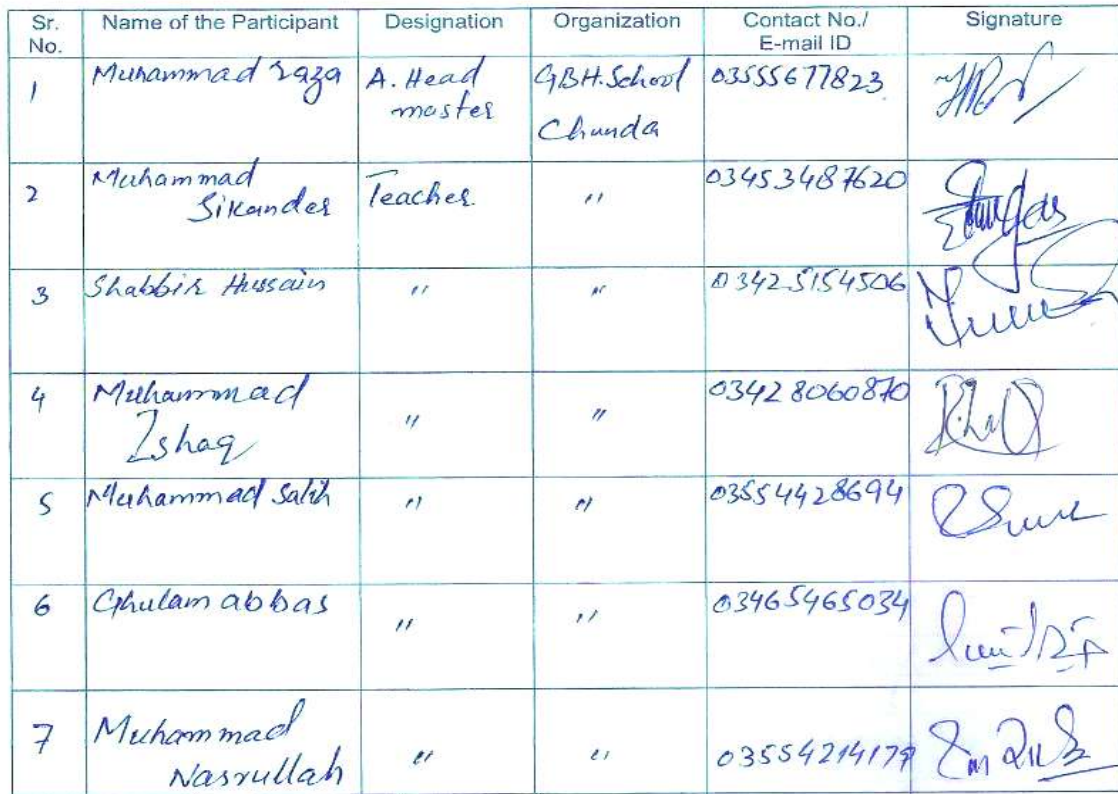 Sr. No. Name of the Participant Designation Organization Contact No./ E-mail ID Signature
1 Muhammad raza A. Head master GBH. School Chunda 03555677823
2 Muhammad Sikander Teacher " 03453487620
3 Shabbir Hussain " " 03425154506
4 Muhammad Ishaq " " 03428060870
5 Muhammad Salih " " 03554428694
6 Ghulam abbas " " 03465465034
7 Muhammad Nasrullah " " 03554214179